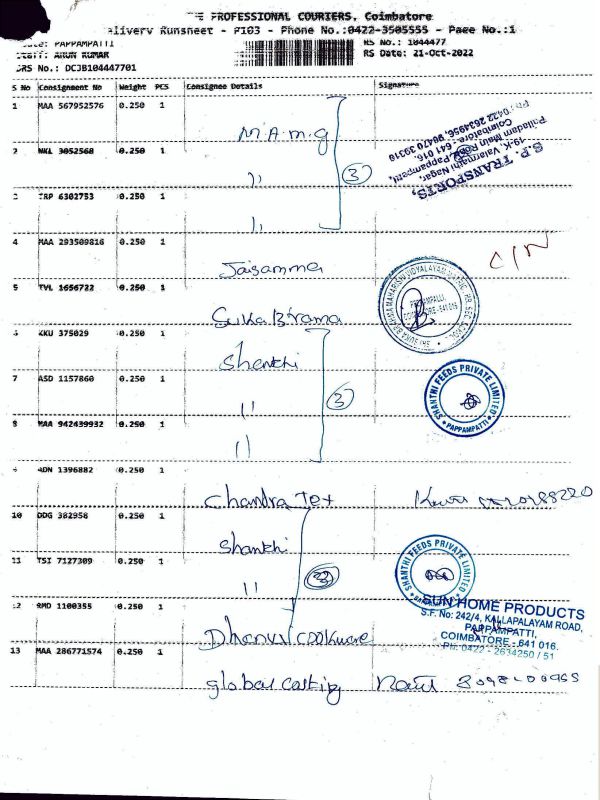 THE PROFESSIONAL COURIERS, Coimbatore
Delivery Runsheet - P103 - Phone No.:0422-3505555 - Page No.:1
Route: PAPPAMPATTI
RS No.: 1044477
Staff: ARUN KUMAR
RS Date: 21-Oct-2022
DRS No.: DCJB104447701
S No Consignment No Weight PCS Consignee Details Signature
1 MAA 567952576 0.250 1
M.A.M.G
2 NKL 3052568 0.250 1
,, 3
S.P. TRANSPORTS,
19-K, Valarmathi Nagar,
Palladam Main Road, Pappampatti,
Coimbatore - 641 016.
Ph: 0422 2634956, 98470 30318
3 TRP 6302753 0.250 1
,,
4 MAA 293509816 0.250 1
Jaisamma
5 TVL 1656722 0.250 1
Suka Btrama
PAPPAMPALLI,
COIMBATORE - 641 016
6 KKU 375029 0.250 1
Shanthi
7 ASD 1157860 0.250 1
,, 3
SHANTHI FEEDS PRIVATE LIMITED
PAPPAMPATTI
8 MAA 942439932 0.250 1
,,
9 ADN 1396882 0.250 1
Chandra Tex
10 DDG 382958 0.250 1
Shanthi
11 TSI 7127309 0.250 1
,,
SHANTHI FEEDS PRIVATE LIMITED
12 RMD 1100355 0.250 1
Dhanus Cookware
SUN HOME PRODUCTS
S.F. No: 242/4, KALLAPALAYAM ROAD,
PAPPAMPATTI,
COIMBATORE - 641 016.
Ph: 0422 - 2634250 / 51
13 MAA 286771574 0.250 1
global casting